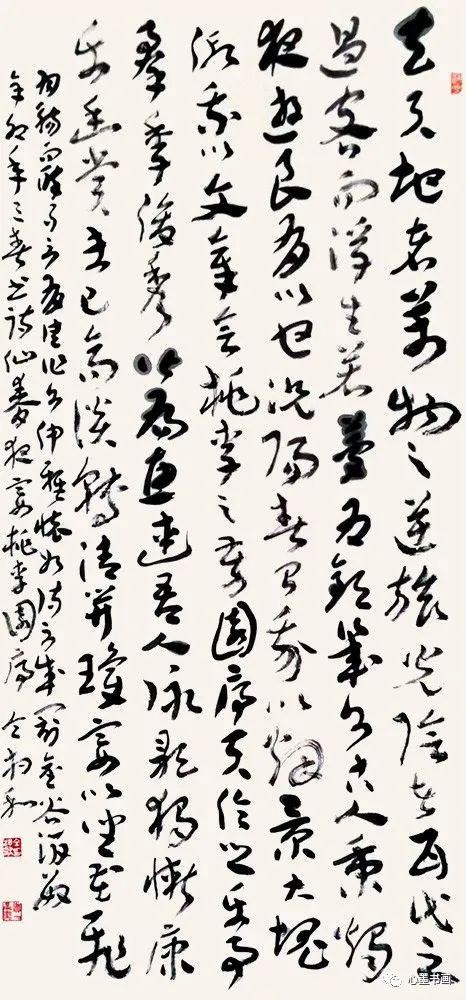 夫天地者萬物之逆旅光陰者百代之
過客而浮生若夢為歡幾何古人秉燭
夜遊良有以也況陽春召我以煙景大塊
假我以文章會桃李之芳園序天倫之樂事
羣季俊秀以為惠連吾人詠歌獨慚康
樂幽賞未已高談轉清開瓊宴以坐花飛
羽觴而醉月不有佳作何伸雅懷如詩不成罰金谷酒數
辛卯年之春書詩仙春夜宴桃李園序
心墨书画